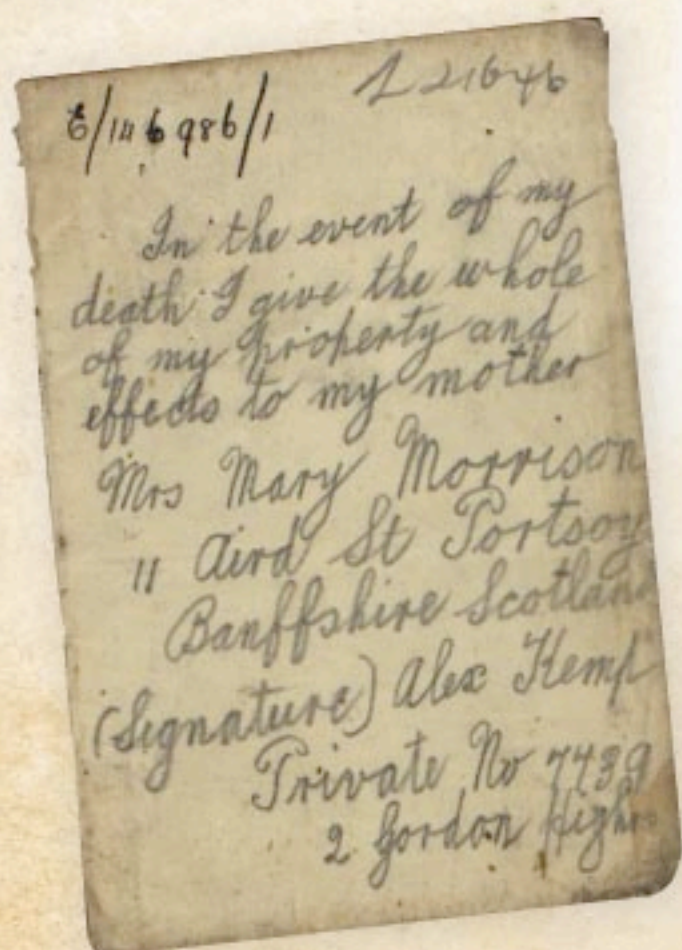 E/146986/1
221646
In the event of my
death I give the whole
of my property and
effects to my mother
Mrs Mary Morrison
11 Aird St Portsoy
Banffshire Scotland
(Signature) Alex Kemp
Private No 7439
2 Gordon Highrs